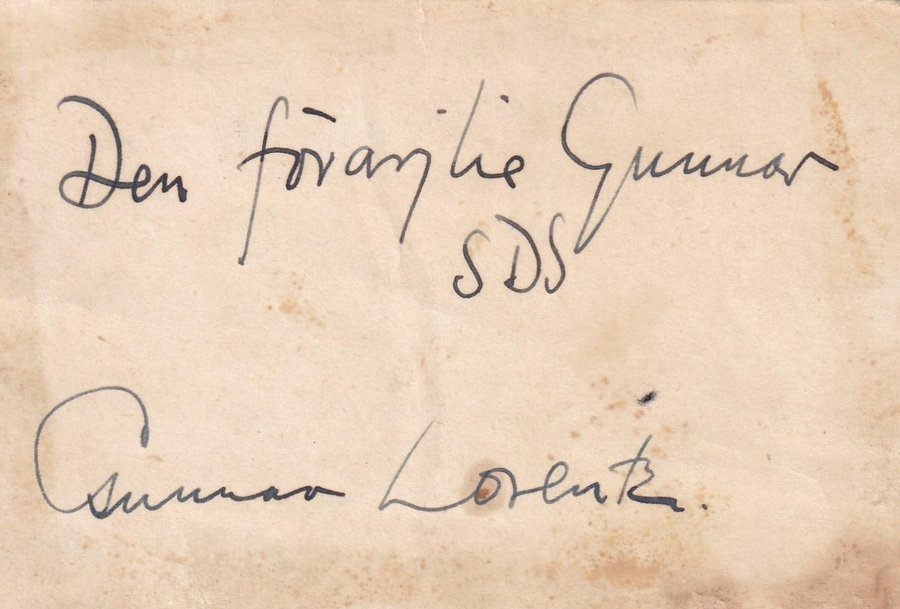 Den förarjlie Gunnar
SDS
Gunnar Lorentz.